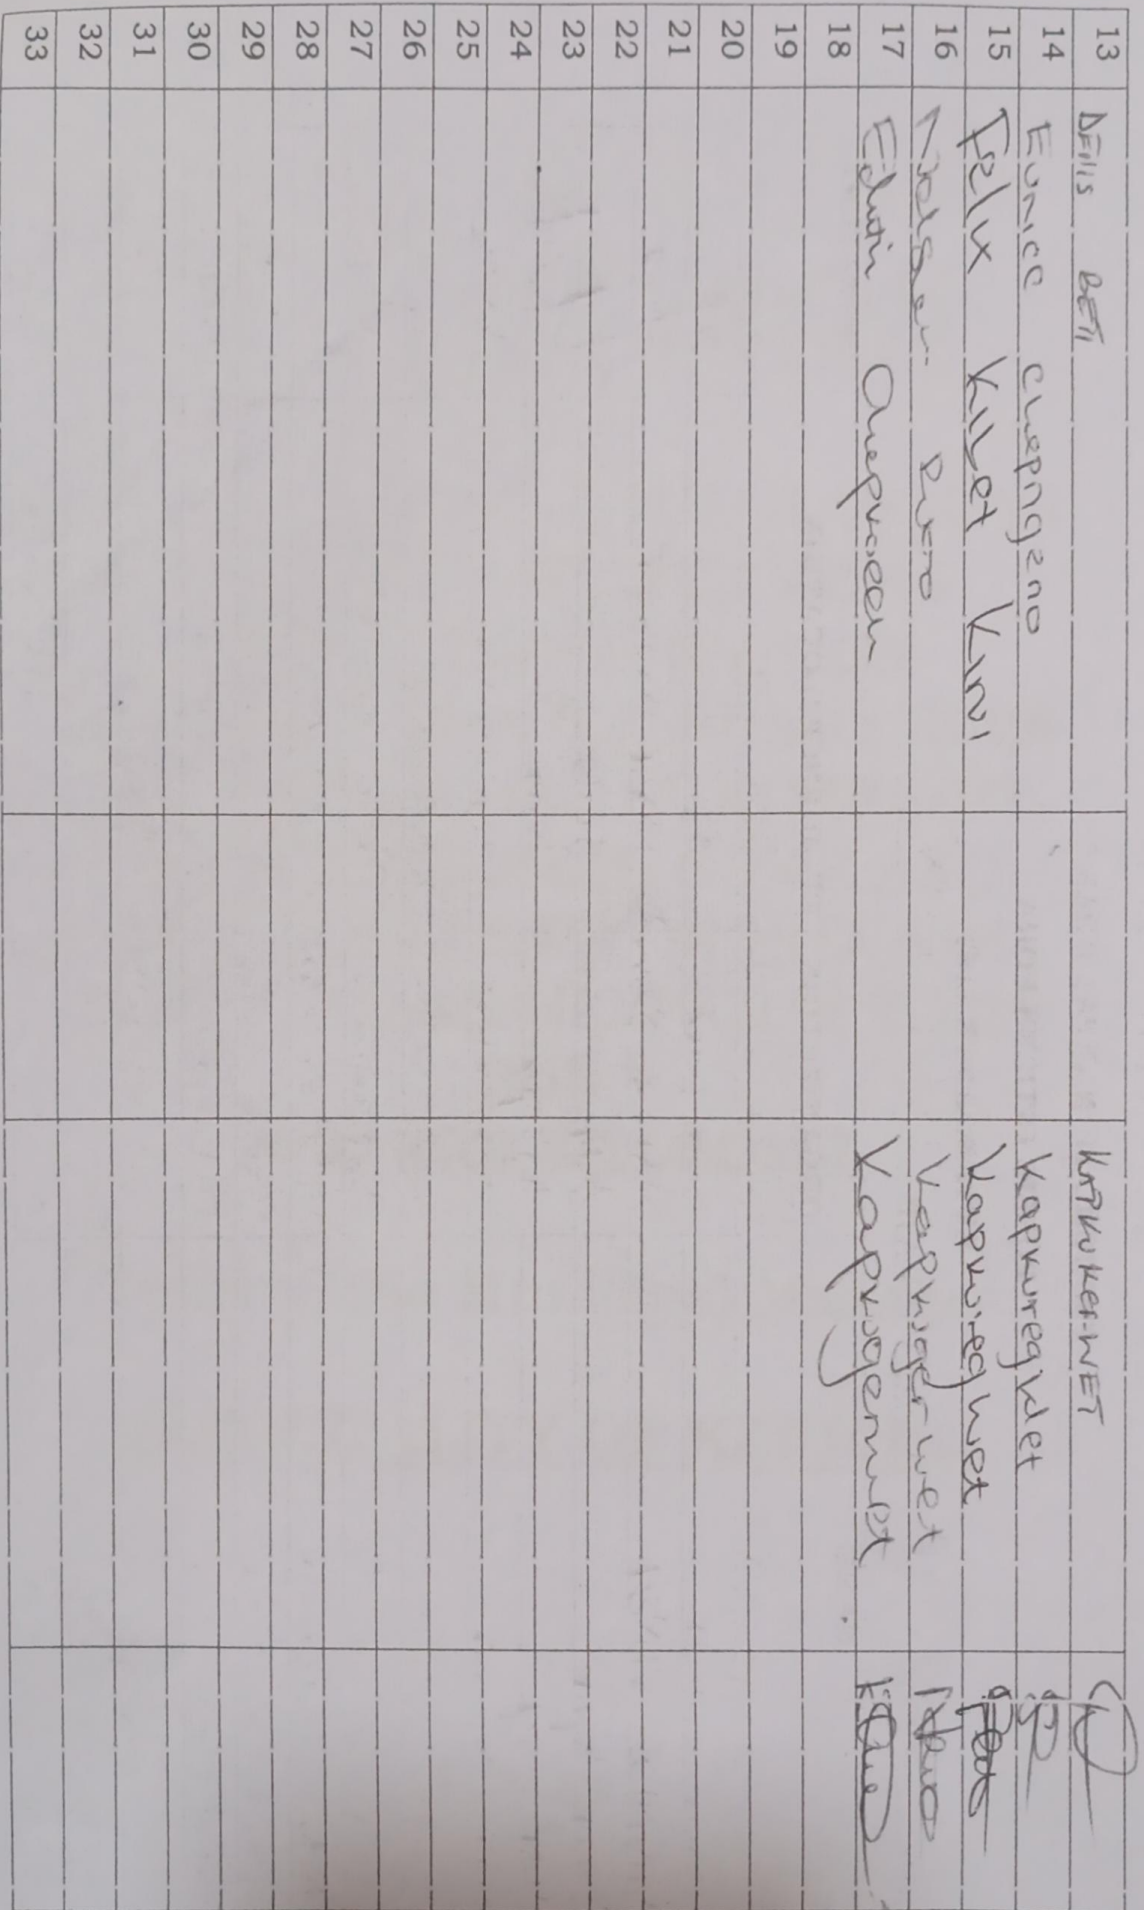 13 Denis Bett KAPKUKERWET
14 Eunice chepngeno Kapkuregwet
15 Felix Kibet Kirui Kapkuregwet
16 Ruto Kapkugerwet
17 Edwin Kapkugerwet
18
19
20
21
22
23
24
25
26
27
28
29
30
31
32
33